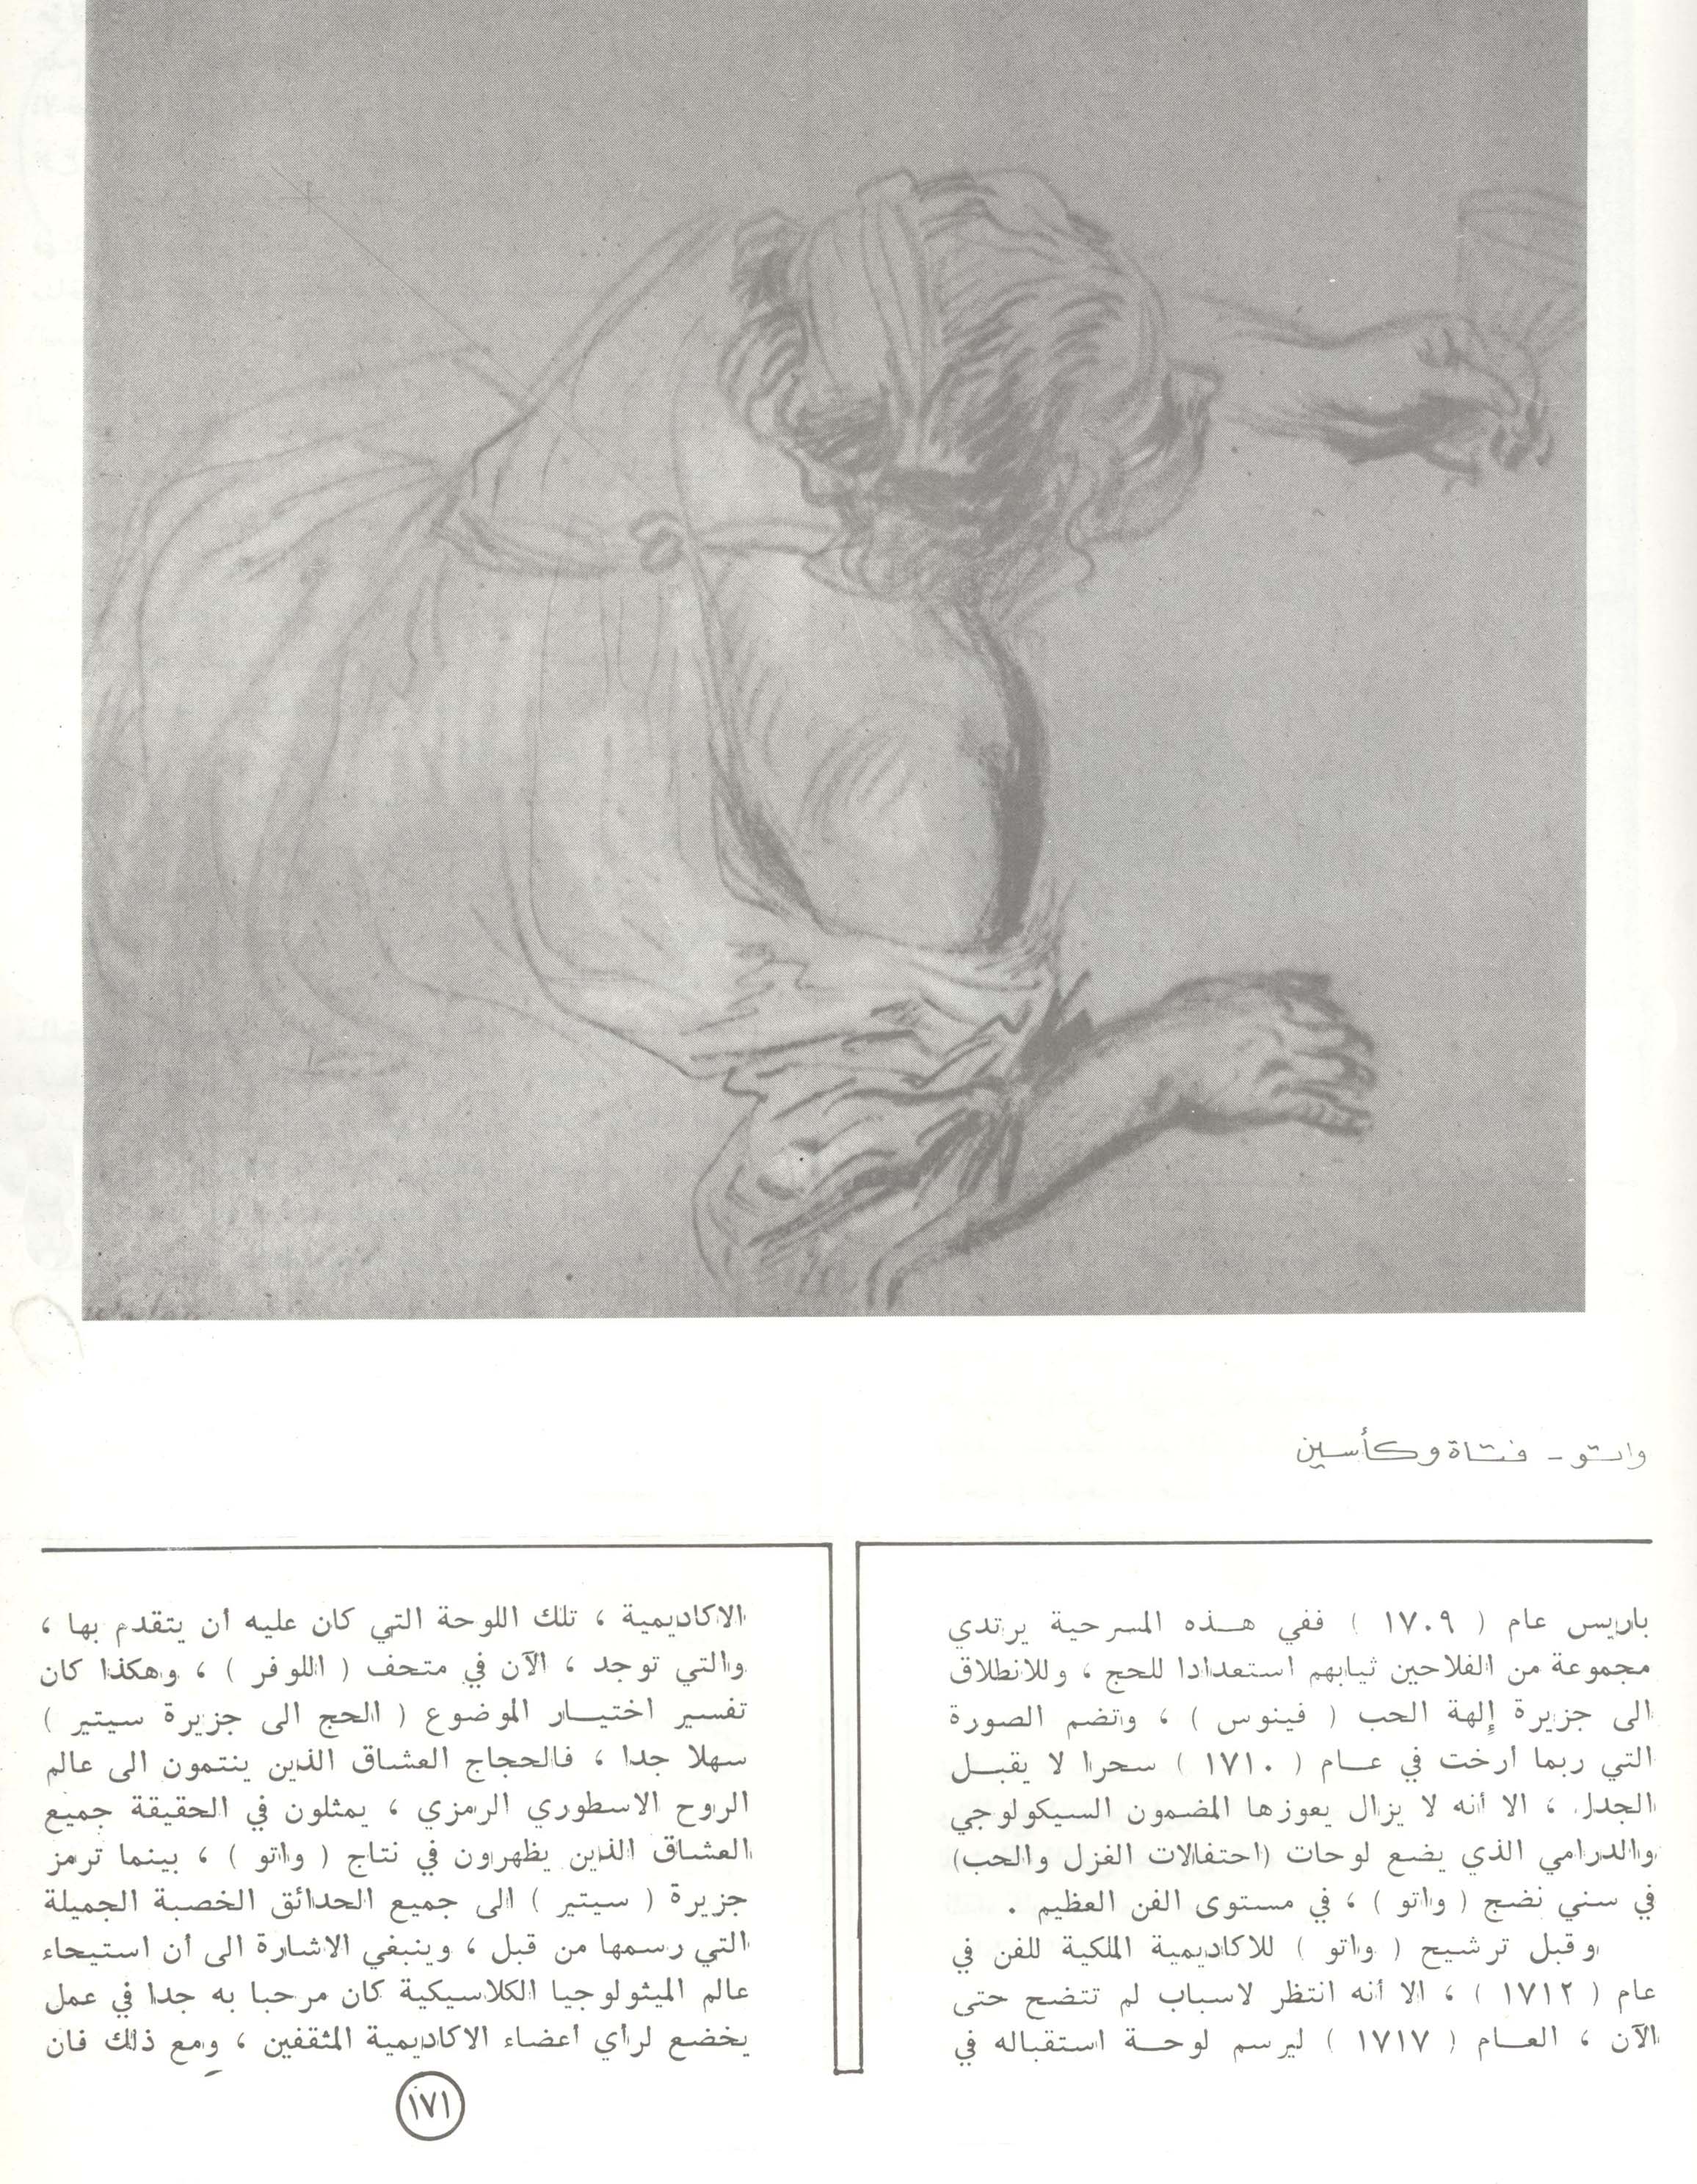 واتو - فتاة وكأسين
باريس عام ( ١٧٠٩ ) ففي هـــذه المسرحية يرتدي
مجموعة من الفلاحين ثيابهم استعدادا للحج ، وللانطلاق
الى جزيرة إلهة الحب ( فينوس ) ، وتضم الصورة
التي ربما أرخت في عـــام ( ١٧١٠ ) سحرا لا يقبـــل
الجدل ، الا أنه لا يزال يعوزها المضمون السيكولوجي
والدرامي الذي يضع لوحات (احتفالات الغزل والحب)
في سني نضج ( واتو ) ، في مستوى الفن العظيم .
وقبل ترشيح ( واتو ) للاكاديمية الملكية للفن في
عام ( ١٧١٢ ) ، الا أنه انتظر لاسباب لم تتضح حتى
الآن ، العـــام ( ١٧١٧ ) ليرسم لوحـــة استقباله في
الاكاديمية ، تلك اللوحة التي كان عليه أن يتقدم بها ،
والتي توجد ، الآن في متحف ( اللوفر ) ، وهكذا كان
تفسير اختيـــار الموضوع ( الحج الى جزيرة سيتير )
سهلا جدا ، فالحجاج العشاق الذين ينتمون الى عالم
الروح الاسطوري الرمزي ، يمثلون في الحقيقة جميع
العشاق الذين يظهرون في نتاج ( واتو ) ، بينما ترمز
جزيرة ( سيتير ) الى جميع الحدائق الخصبة الجميلة
التي رسمها من قبل ، وينبغي الاشارة الى أن استيحاء
عالم الميثولوجيا الكلاسيكية كان مرحبا به جدا في عمل
يخضع لرأي أعضاء الاكاديمية المثقفين ، ومع ذلك فان
١٧١